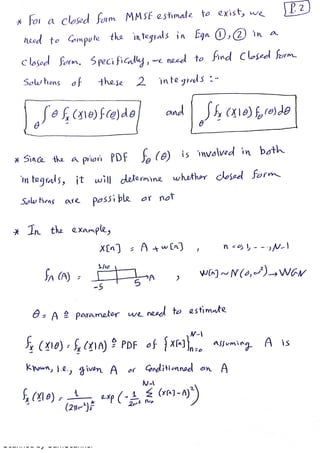 P.2
* For a closed form MMSE estimate to exist, we
need to compute the integrals in Eqn ①,② in a
closed form. Specifically, we need to find closed form
Solutions of these 2 integrals :-
∫_θ θ f_x (x|θ) f(θ) dθ and ∫_θ f_x (x|θ) f_θ(θ) dθ
* Since the a priori PDF f_θ (θ) is involved in both
integrals, it will determine whether closed form
Solutions are possible or not
* In the example,
x[n] = A + w[n] , n = 0, 1, - - -, N-1
1/10
f_A (A) = -5 5 A , w[n] ~ N(0, σ²) → WGN
θ = A ≜ parameter we need to estimate
f_x (x|θ) = f_x (x|A) ≜ PDF of {x[n]}_{n=0}^{N-1} assuming A is
known, i.e., given A or Conditioned on A
f_x (x|θ) = 1/(2πσ²)^{N/2} exp (-1/2σ² Σ_{n=0}^{N-1} (x[n]-A)²)